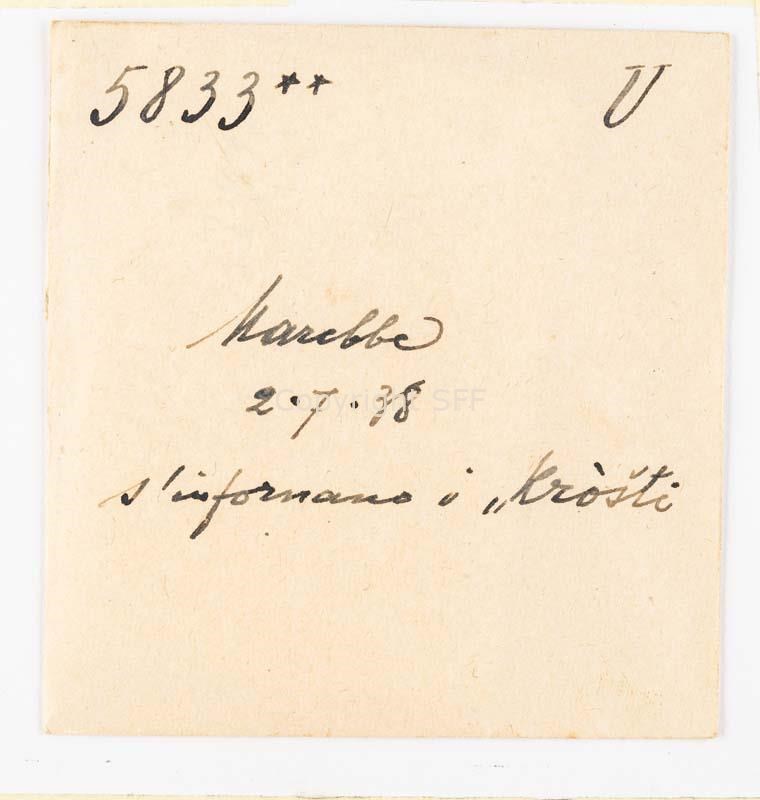 5833** U
Marebbe
2·7·38
Copyright SFF
s'infornano i „Kròšti